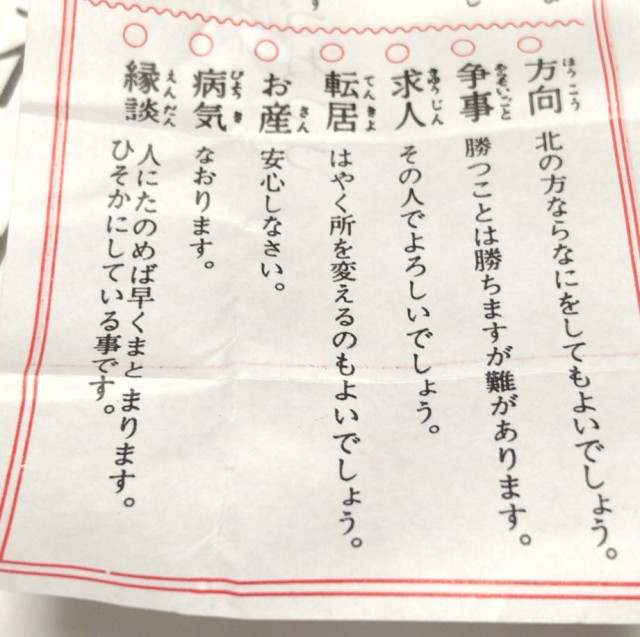 ○方向 ほうこう 北の方ならなにをしてもよいでしょう。
○争事 あらそいごと 勝つことは勝ちますが難があります。
○求人 きゅうじん その人でよろしいでしょう。
○転居 てんきよ はやく所を変えるのもよいでしょう。
○お産 さん 安心しなさい。
○病気 びょうき なおります。
○縁談 えんだん 人にたのめば早くまとまります。
ひそかにしている事です。